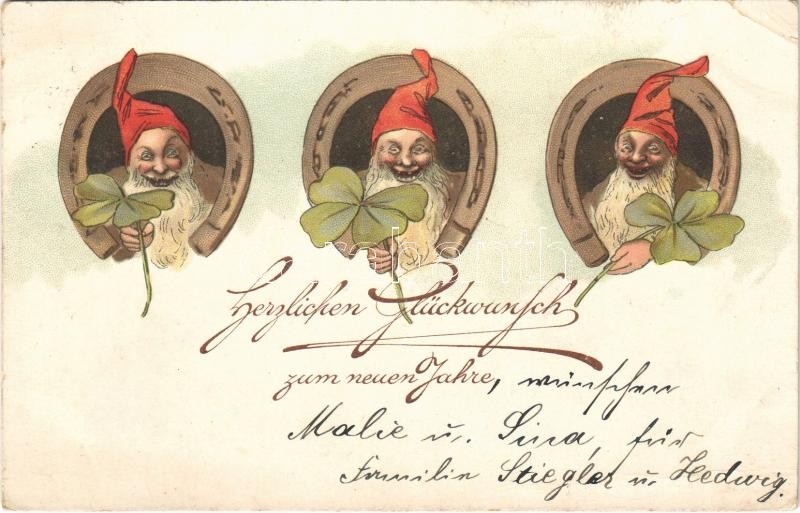 Herzlichen Glückwunsch
zum neuen Jahre, wünschen
Malie u. Sina, für
Familie Stiegler u. Hedwig.